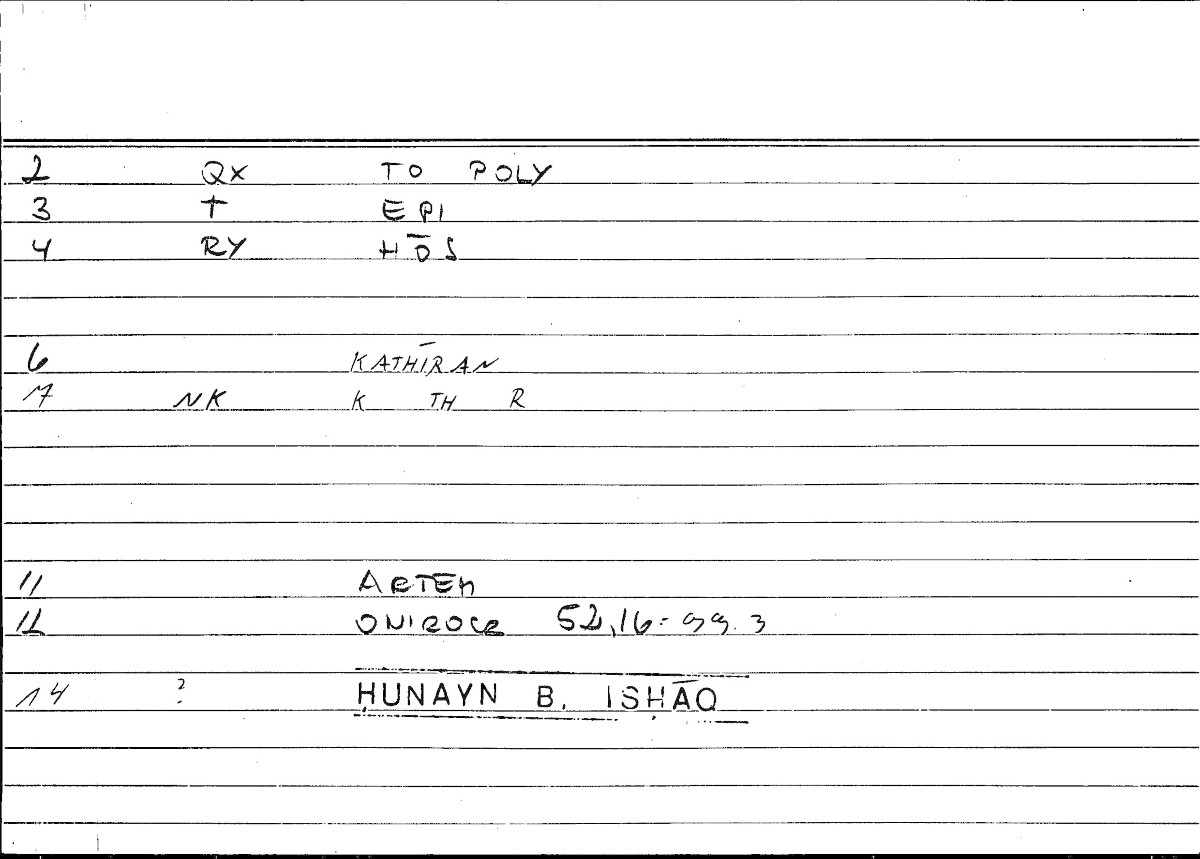 2 QX TO POLY
3 T EPI
4 RY HŌS
6 KATHĪRAN
7 NK K TH R
11 ARTEM
12 ONIROCR 52,16 = 99.3
14 ? ḤUNAYN B. ISḤĀQ